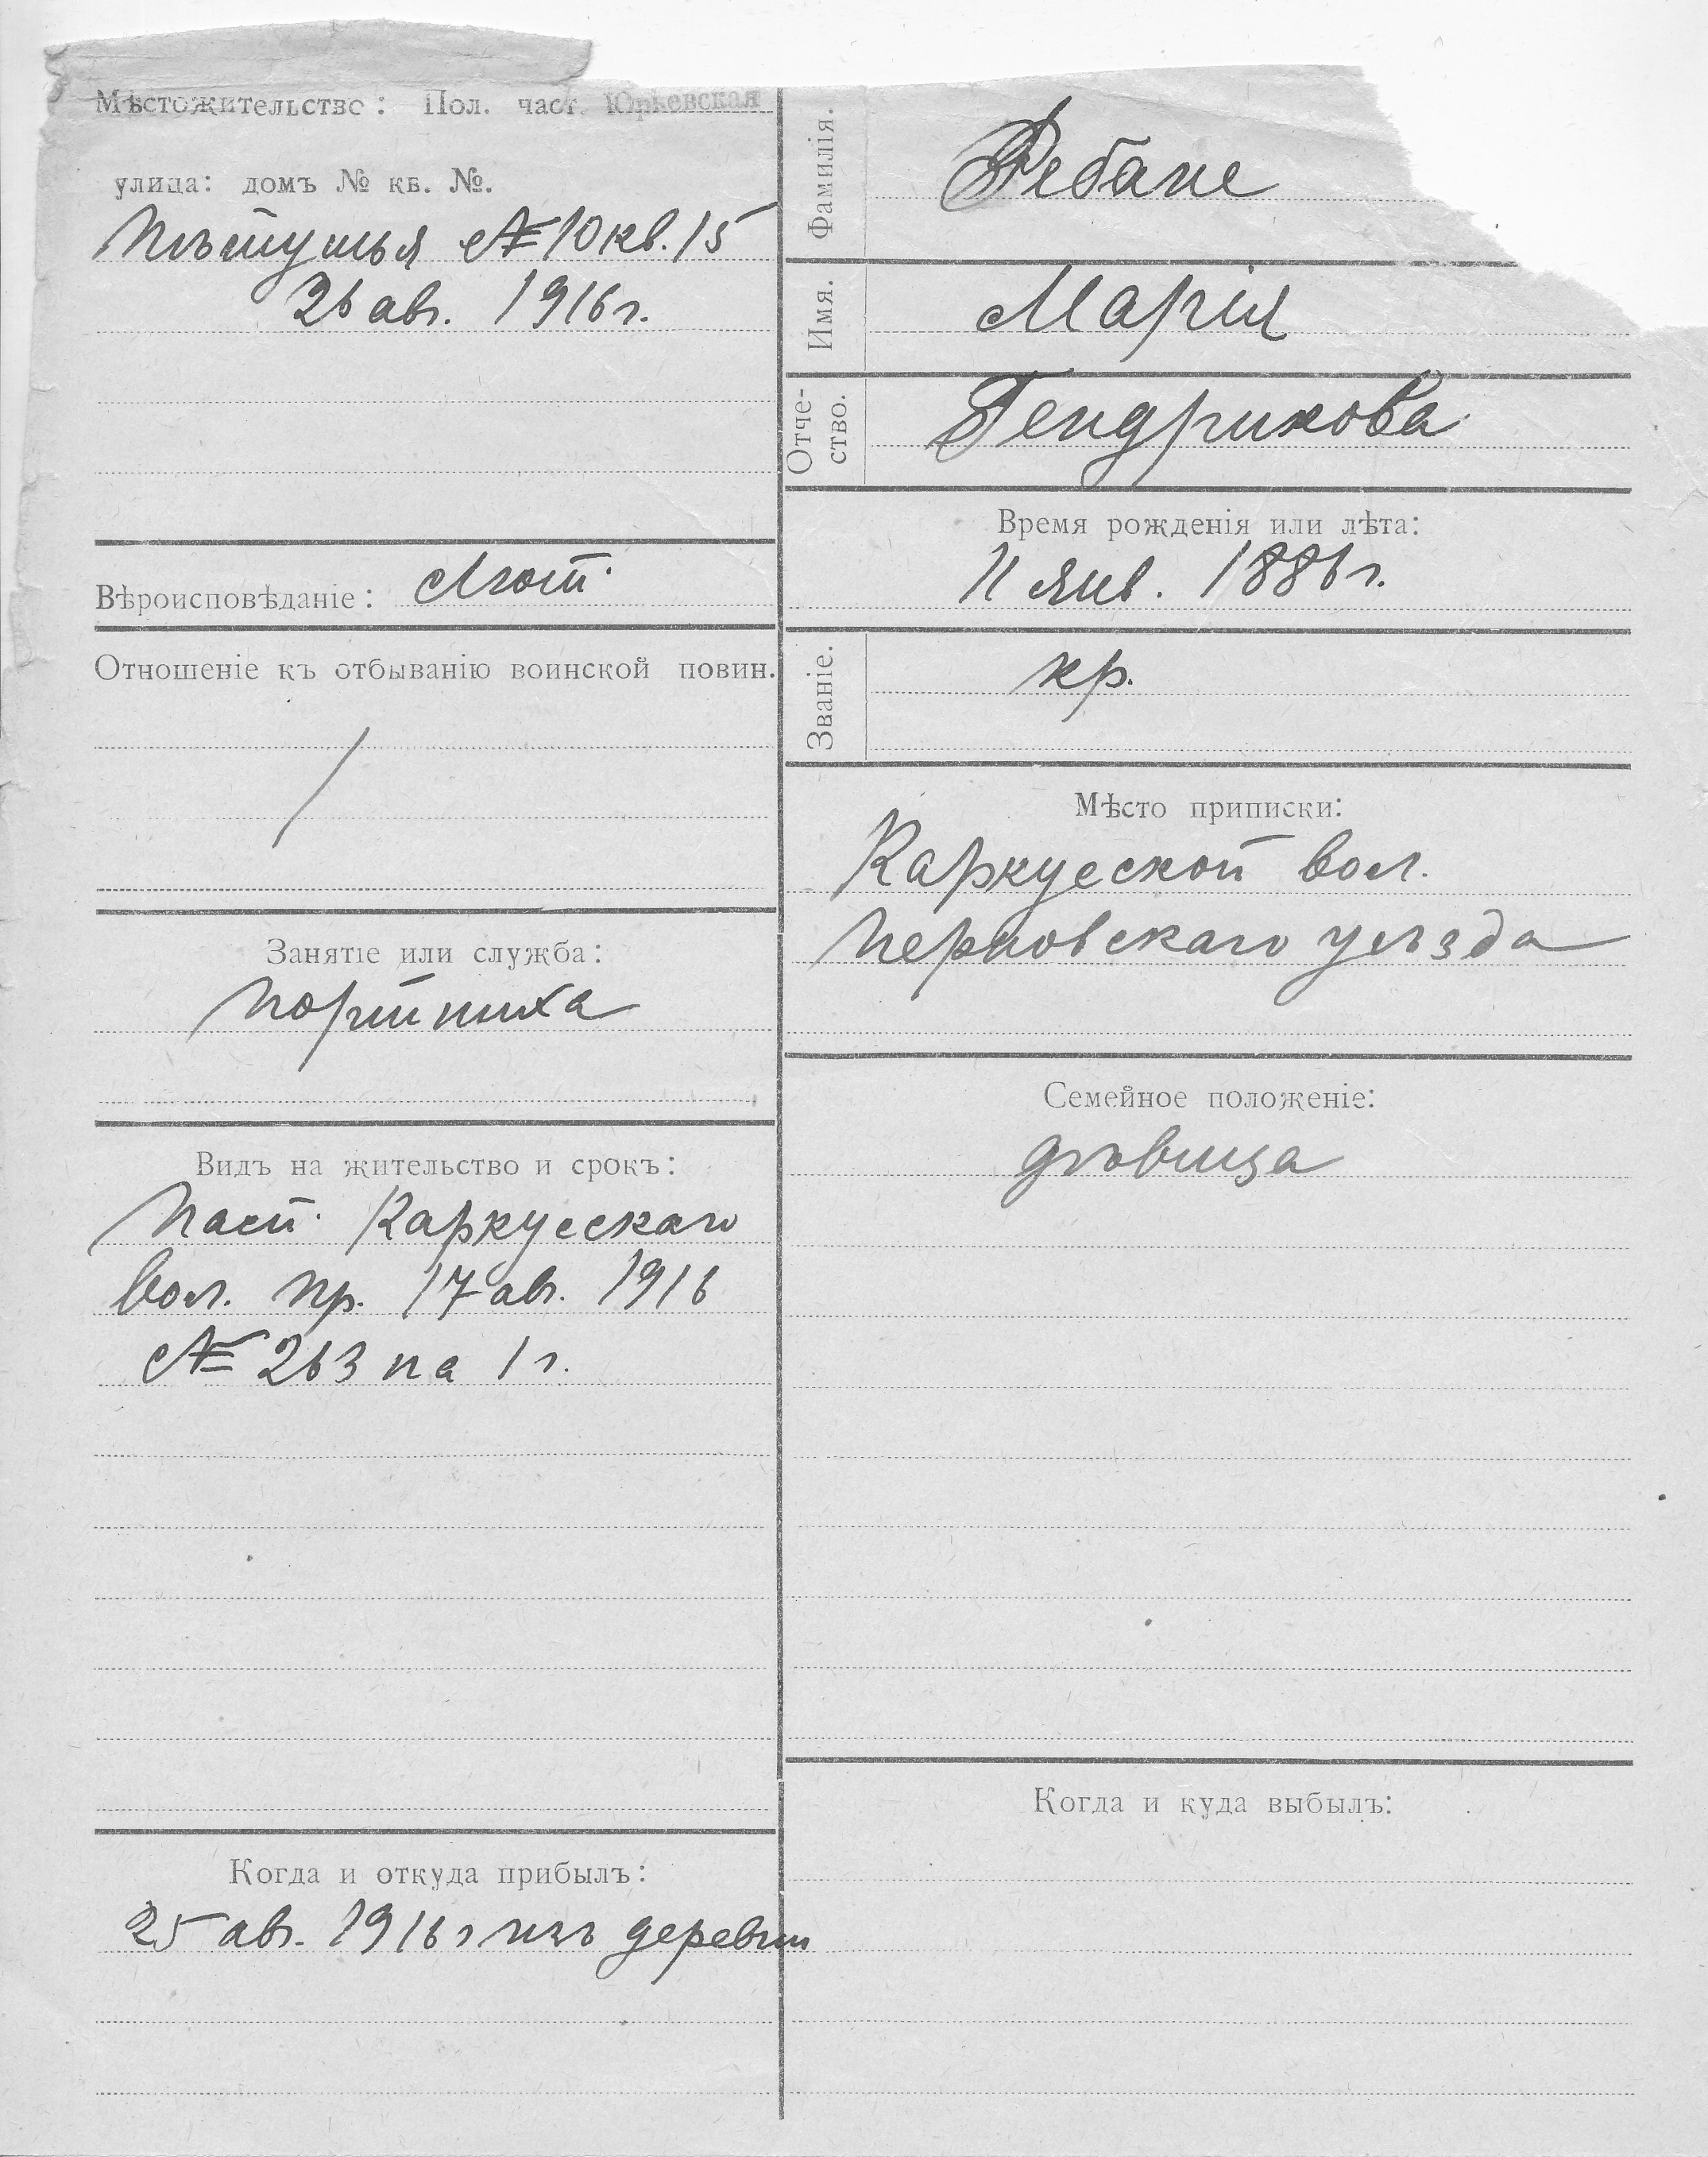 Мѣстожительство: Пол. част. Юрьевская
улица: домъ № кв. №.
Пѣтушья № 10 кв. 15
26 авг. 1916 г.
Вѣроисповѣданіе: Лют.
Отношеніе къ отбыванію воинской повин.
/
Занятіе или служба:
Портниха
Видъ на жительство и срокъ:
Пасп. Каркусскаго
вол. пр. 17 авг. 1916
№ 263 на 1 г.
Когда и откуда прибылъ:
25 авг. 1916 г изъ деревни
Фамилія. Ребане
Имя. Марія
Отче-
ство. Гендрикова
Время рожденія или лѣта:
11 янв. 1886 г.
Званіе. кр.
Мѣсто приписки:
Каркусской вол.
Перновскаго уѣзда
Семейное положеніе:
дѣвица
Когда и куда выбылъ: